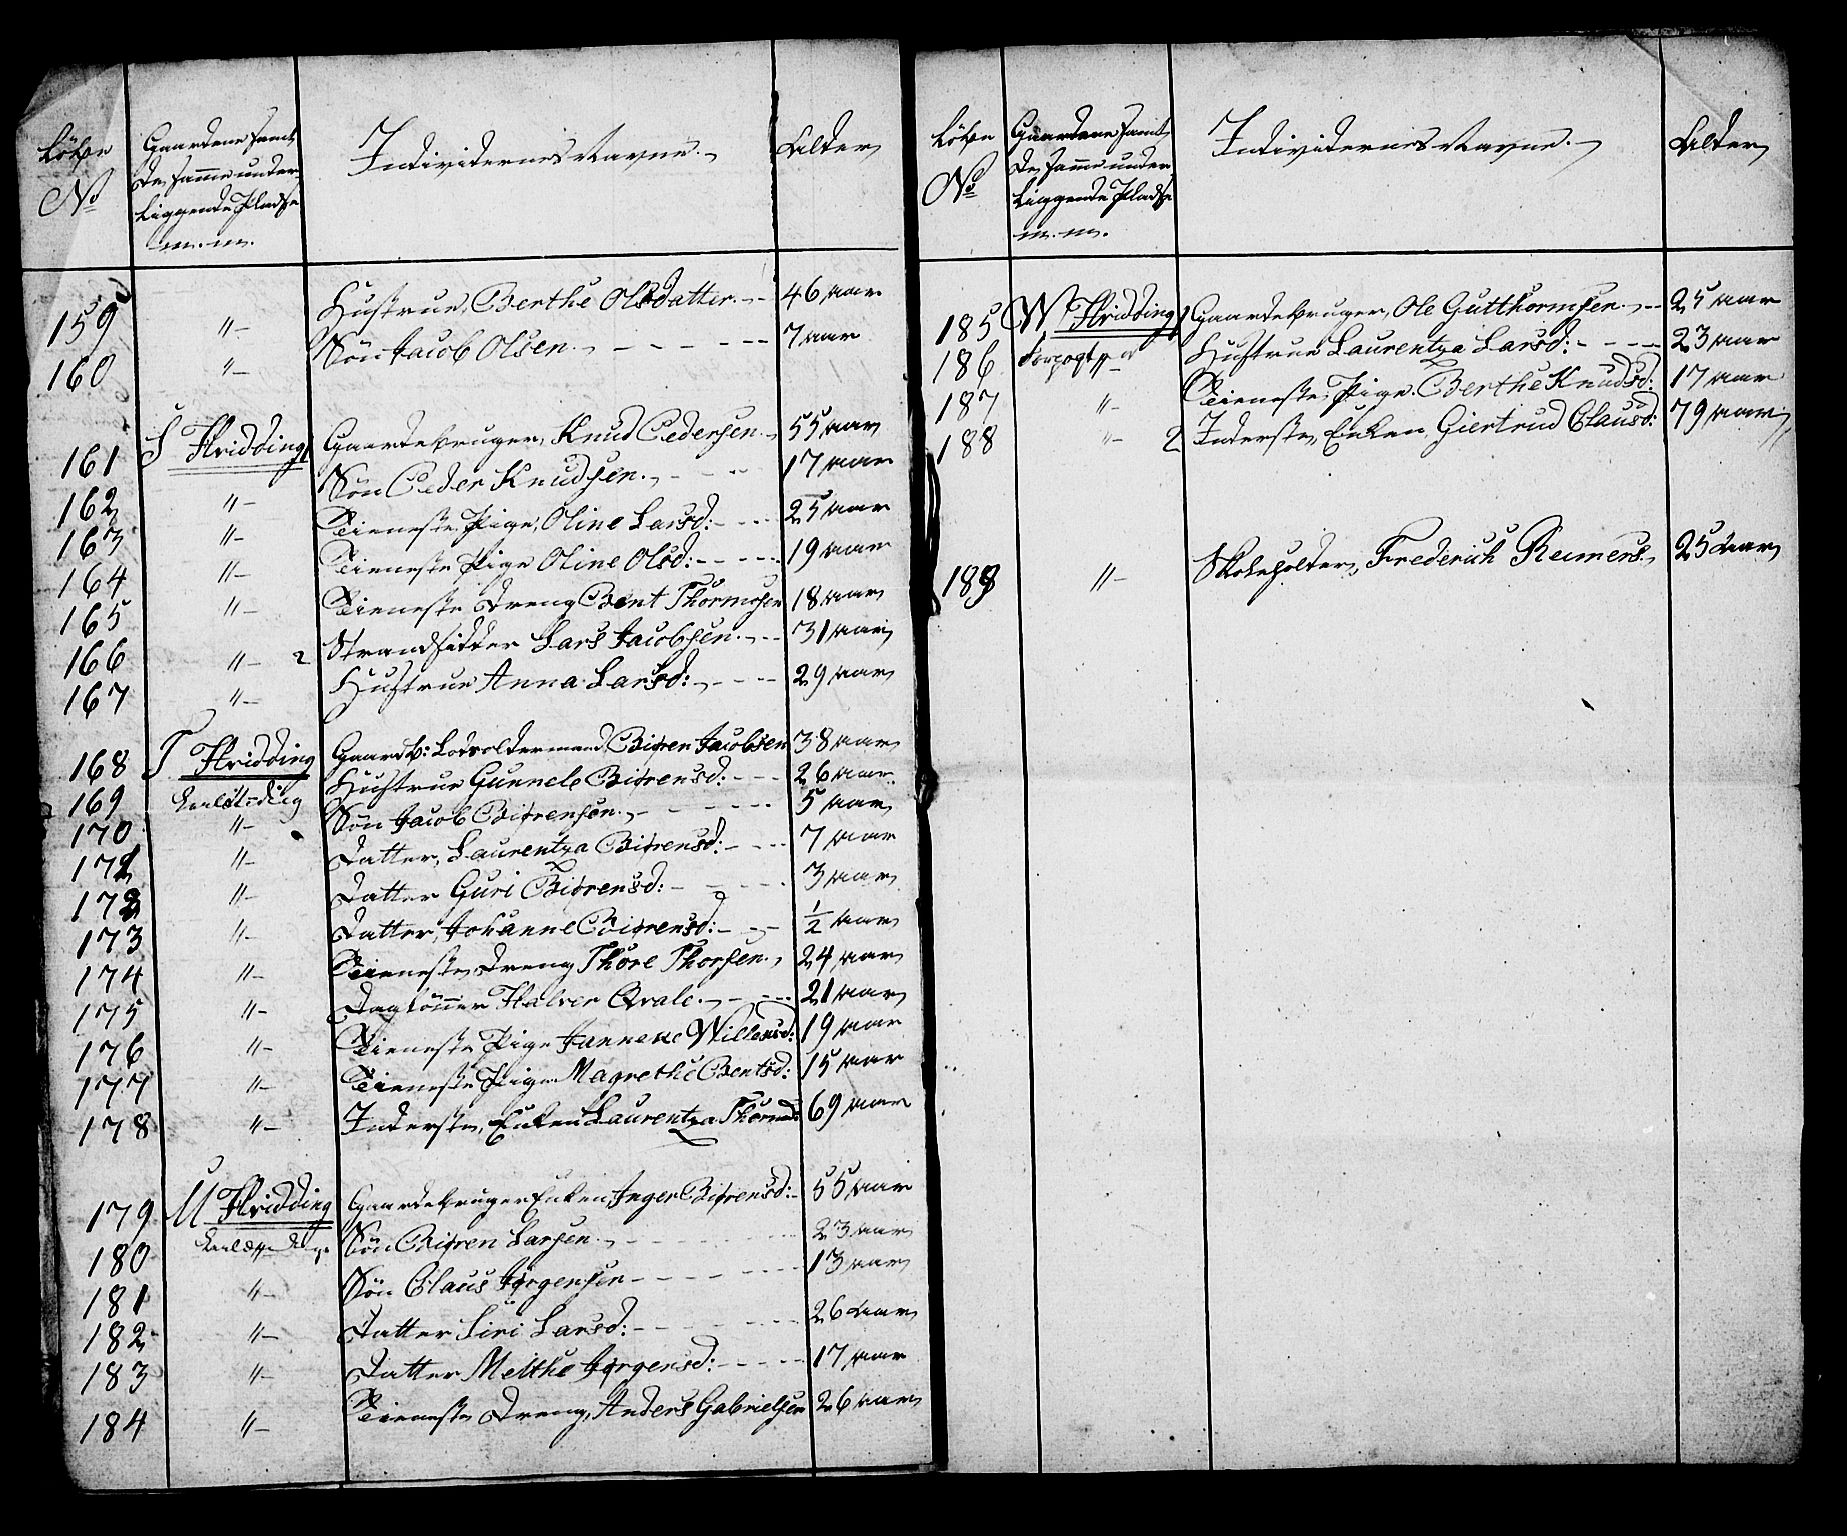 Løbe
No
Gaardene samt
de samme under-
liggende Pladse
m. m.
Individernes Navne.
Alder
159 "- Hustrue, Berthe Olsdatter. - - 46 aar
160 "- Søn Jacob Olsen. - - - - 7 aar
161 S Hridding 1 Gaardebruger, Knud Pedersen. 55 aar
162 "- Søn Peder Knudsen. - - - 17 aar
163 "- Tieneste Pige, Oline Larsd: - - - 25 aar
164 "- Tieneste Pige Oline Olsd: - - - 19 aar
165 "- Tieneste Dreng Bent Thormosen 18 aar
166 "- 2 Strandsidder Lars Jacobsen. - - 31 aar
167 "- Hustrue Anna Larsd: - - - 29 aar
168 T Hridding Gaardb: Lodsoldermand Biøren Jacobsen 38 aar
169 Hustrue Gunnele Biørensd: - - - 26 aar
170 "- Søn Jacob Biørensen. - - - - 5 aar
171 "- Datter, Laurentza Biørensd: - - - 7 aar
172 "- Datter Guri Biørensd: - - - 3 aar
173 "- Datter, Johanne Biørensd: - - - 1/2 aar
174 "- Tieneste Dreng Thore Thorsen. 24 aar
175 "- Dagløner Halver Qvale. - - - 21 aar
176 "- Tieneste Pige Janneke Willumsd: 19 aar
177 "- Tieneste Pige Magrethe Bentsd: 15 aar
178 "- Inderste, Enken Laurentza Thormods 69 aar
179 U Hridding Gaardebruger Enken, Inger Biørensd: - 55 aar
180 Søn Biøren Larsen. - - - 23 aar
181 "- Søn Claus Jørgensen - - - 13 aar
182 "- Datter Siri Larsd: - - - 26 aar
183 "- Datter Melthe Jørgensd: - - - 17 aar
184 "- Tieneste Dreng, Anders Gabrielsen 26 aar
Løbe
No
Gaardene samt
de samme under
liggende Pladse
m. m.
Individernes Navne.
Alder
185 W Hridding 1 Gaardebruger, Ole Gutthormsen. - - 25 aar
186 "- Hustrue Laurentza Larsd: - - - 23 aar
187 "- Tieneste Pige. Berthe Knudsd: 17 aar
188 "- 2 Inderste, Enken, Giertrud Clausd: 79 aar
189 "- Skoleholder, Frederich Reimers. 25 aar